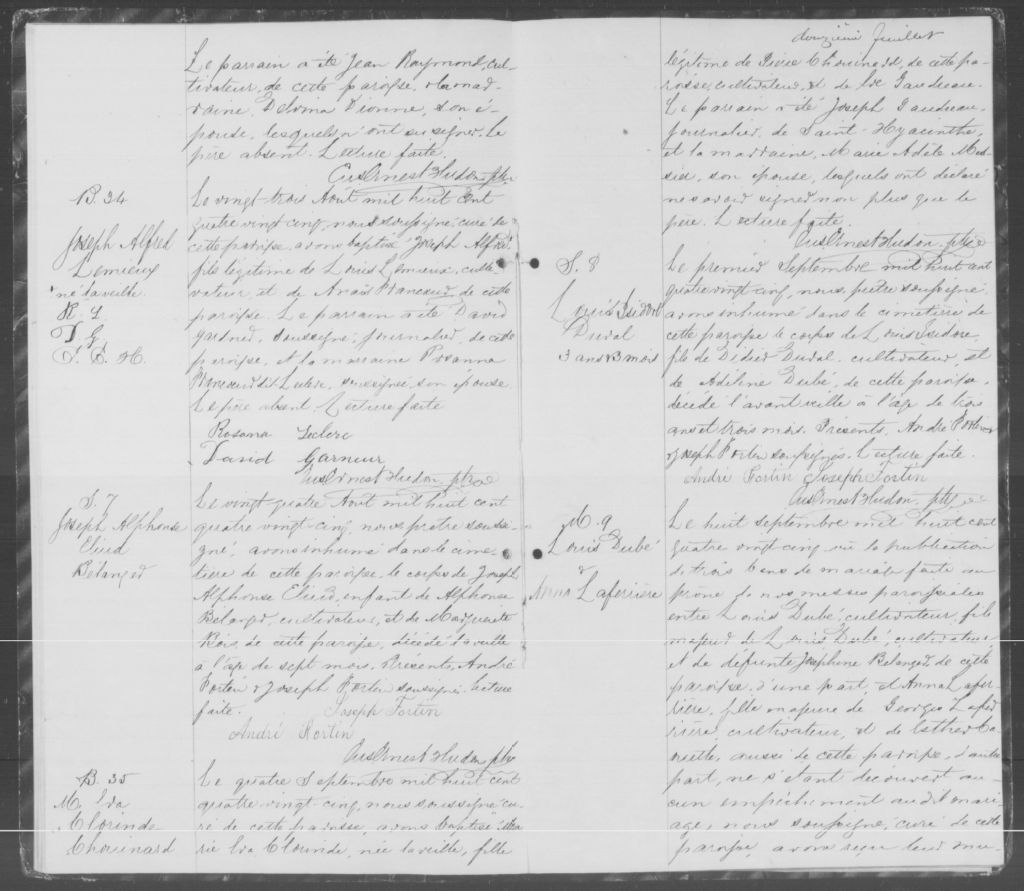 Le parrain a été Jean Raymond, cul-
tivateur, de cette paroisse, et la mar-
raine, Delvina Dionne, son é-
pouse, lesquels n'ont su signer. Le
père absent. Lecture faite.
Ernest Hudon, ptre
B. 34
Joseph Alfred
Lemieux
né la veille
H. L.
D. G.
J. E. H.
Le vingt trois Aout mil huit cent
quatre vingt cinq, nous soussigné, curé de
cette paroisse, avons baptisé Joseph Alfred,
fils légitime de Louis Lemieux, culti-
vateur, et de Anaïs de cette
paroisse. Le parrain a été David
Garneur, soussigné, journalier, de cette
paroisse, et la marraine Rosanna
soussignée, son épouse.
Le père absent. Lecture faite
Rosana Leclerc
David Garneur
Ernest Hudon, ptre
S. 7
Joseph Alphonse
Eliud
Bélanger
Le vingt quatre Aout mil huit cent
quatre vingt cinq, nous prêtre soussi-
gné, avons inhumé dans le cime-
tière de cette paroisse, le corps de Joseph
Alphonse Eliud, enfant de Alphonse
Bélanger, cultivateur, et de Marguerite
Bois, de cette paroisse, décédé la veille
à l'age de sept mois. Présents, André
Fortin & Joseph Fortin soussignés. Lecture
faite. Joseph Fortin
André Fortin
Ernest Hudon, ptre
B. 35
M. Eva
Clorinde
Chouinard
Le quatre Septembre mil huit cent
quatre vingt cinq, nous soussigné cu-
ré de cette paroisse, avons baptisé Ma-
rie Eva Clorinde, née la veille, fille
douzième feuillet
légitime de Pierre Chouinard, de cette pa-
roisse, cultivateur, et de Eve Gaudreau.
Le parrain a été Joseph Gaudreau,
journalier, de Saint-Hyacinthe,
et la marraine, Marie Adèle
son épouse, lesquels ont déclaré
ne savoir signer non plus que le
père. Lecture faite.
Ernest Hudon, ptre
S. 8
Louis Isidore
Duval
3 ans & 3 mois
Le premier Septembre mil huit cent
quatre vingt cinq, nous, prêtre soussigné,
avons inhumé dans le cimetière de
cette paroisse le corps de Louis Isidore,
fils de Didier Duval, cultivateur, et
de Adéline Dubé, de cette paroisse,
décédé l'avant veille à l'age de trois
ans et trois mois. Présents, André Fortin
& Joseph Fortin soussignés. Lecture faite.
André Fortin Joseph Fortin
Ernest Hudon, ptre
M. 9
Louis Dubé
&
Anna Laferrière
Le huit septembre mil huit cent
quatre vingt cinq, vu la publication
de trois bans de mariage faite au
prone de nos messes paroissiales
entre Louis Dubé, cultivateur, fils
majeur de Louis Dubé, cultivateur
et de défunte Josephine Bélanger, de cette
paroisse, d'une part, et Anna Lafer-
rière, fille majeure de Georges Lafer-
rière, cultivateur, et de Esther
aussi de cette paroisse, d'autre
part, ne s'étant découvert au-
cun empêchement au dit mari-
age, nous soussigné, curé de cette
paroisse, avons reçu leur mu-